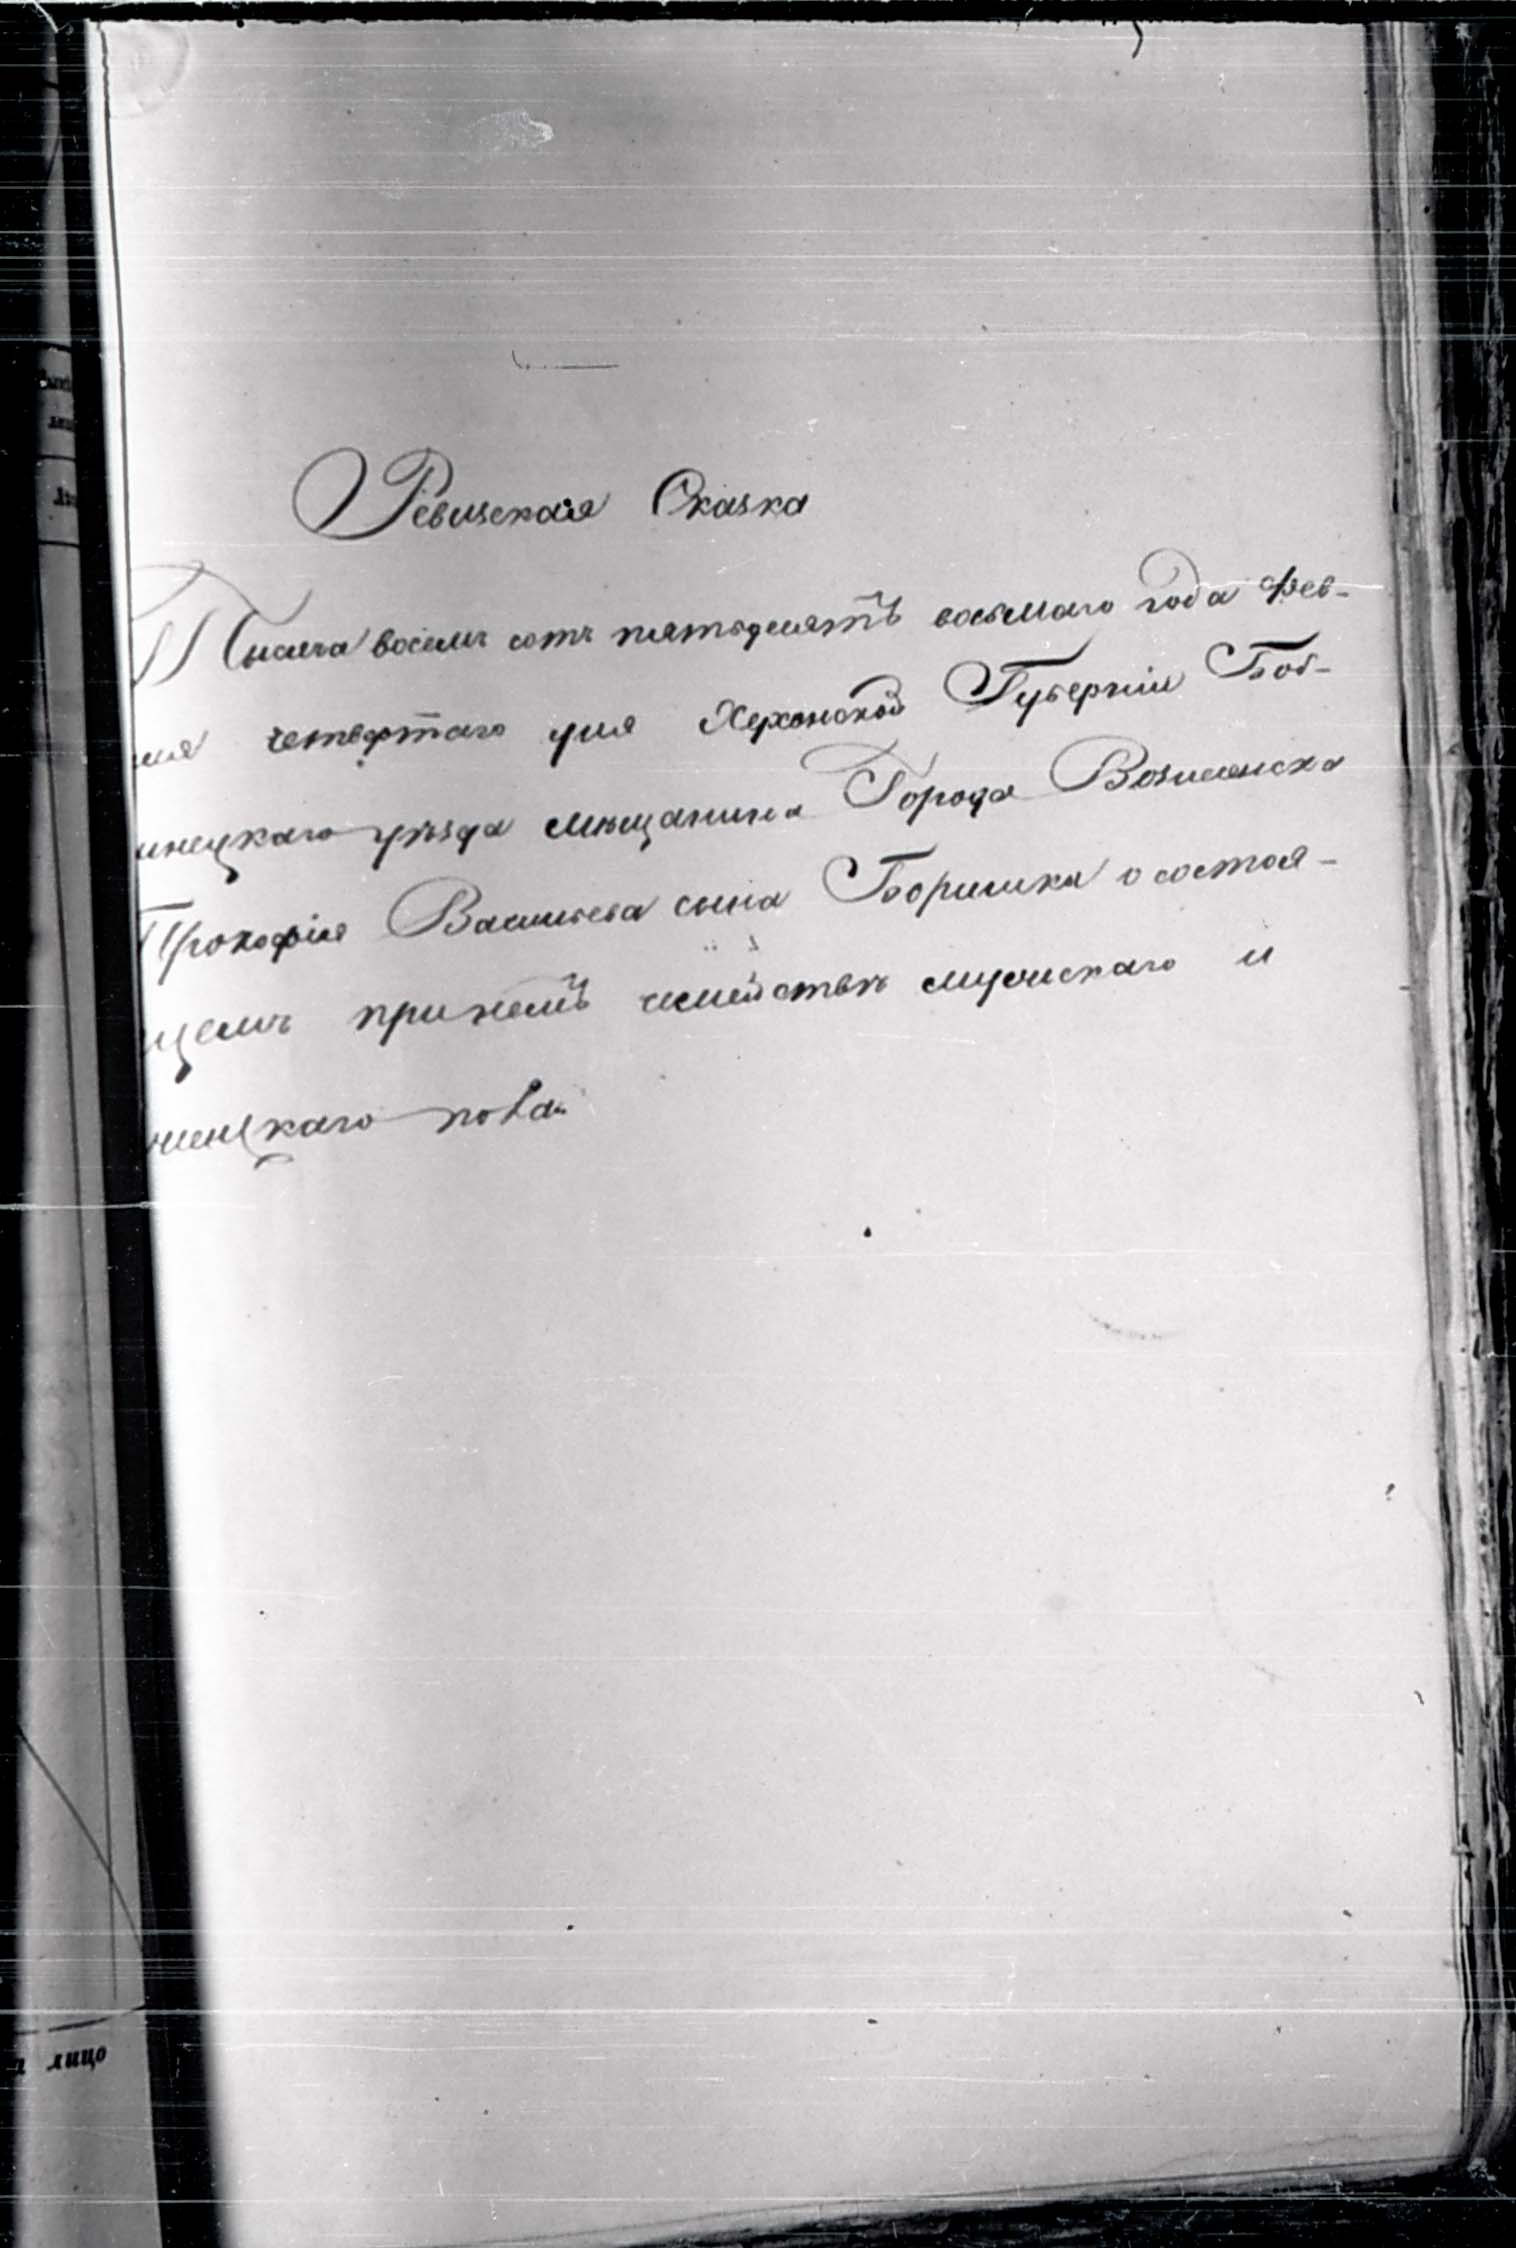 Ревизская Сказка
Тысяча восемь сотъ пятьдесятъ восьмаго года Фев-
ля четвертаго дня Херсонской Губерніи Боб-
инецкаго уѣзда мѣщанина Города Вознесенска
Прокофія Васильева сына Боришка о состоя-
щемъ при немъ семействѣ мужскаго и
женскаго пола.
лицо